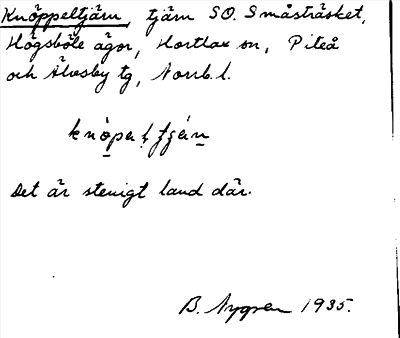 Knöppeltjärn, tjärn SO. Småsträsket,
Högsböle ägor, Hortlax sn, Piteå
och Älvsby tg, Norrb. l.
Det är stenigt land där.
B. Nygren 1935.